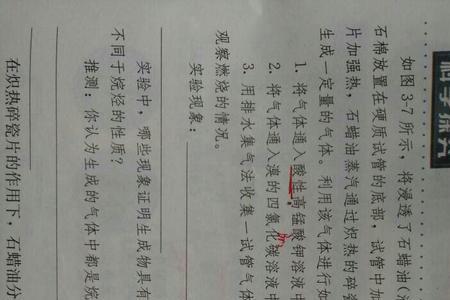 科学探究
如图 3-7 所示，将浸透了石蜡油(
石棉放置在硬质试管的底部，试管中加
片加强热，石蜡油蒸汽通过炽热的碎瓷
生成一定量的气体。利用该气体进行如
1. 将气体通入酸性高锰酸钾溶液中
2. 将气体通入溴的四氯化碳溶液中
3. 用排水集气法收集一试管气体
观察燃烧的情况。
实验现象：
实验中，哪些现象证明生成物具有
不同于烷烃的性质？
推测：你认为生成的气体中都是烷
在炽热碎瓷片的作用下，石蜡油分